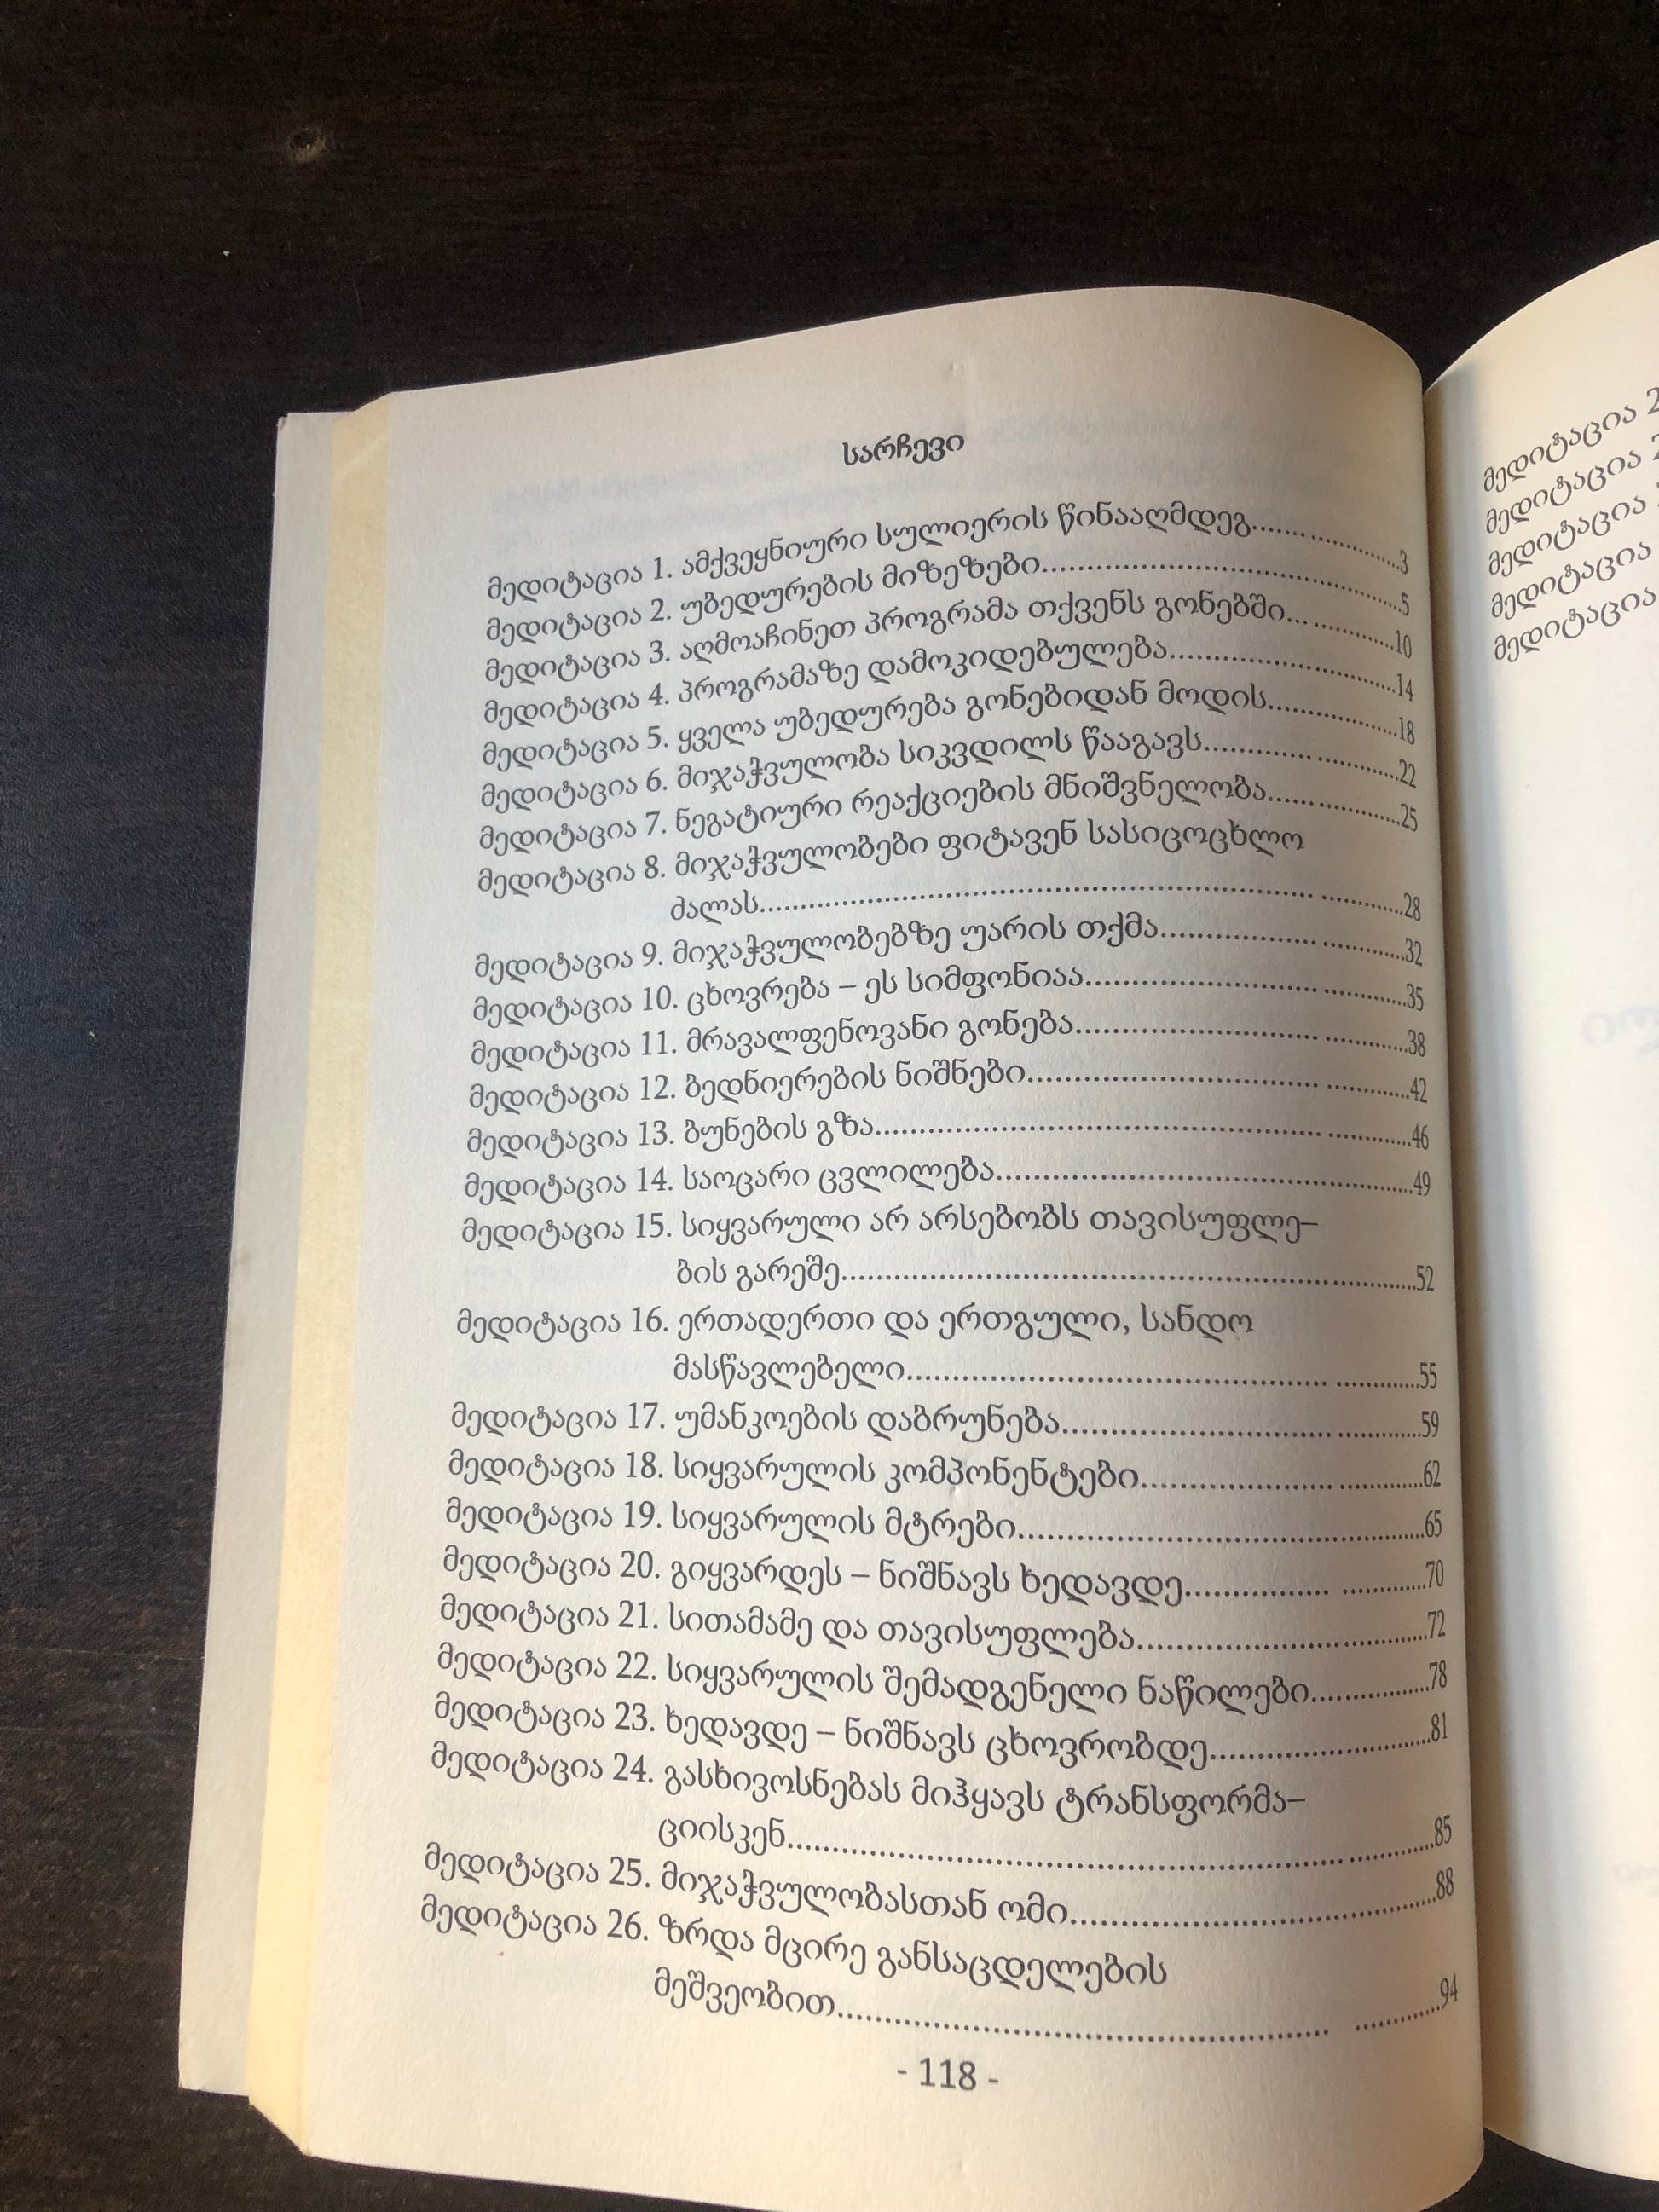 სარჩევი
მედიტაცია 1. ამქვეყნიური სულიერის წინააღმდეგ.................3
მედიტაცია 2. უბედურების მიზეზები.................5
მედიტაცია 3. აღმოაჩინეთ პროგრამა თქვენს გონებში.................10
მედიტაცია 4. პროგრამაზე დამოკიდებულება.................14
მედიტაცია 5. ყველა უბედურება გონებიდან მოდის.................18
მედიტაცია 6. მიჯაჭვულობა სიკვდილს წააგავს.................22
მედიტაცია 7. ნეგატიური რეაქციების მნიშვნელობა.................25
მედიტაცია 8. მიჯაჭვულობები ფიტავენ სასიცოცხლო
ძალას.................28
მედიტაცია 9. მიჯაჭვულობებზე უარის თქმა.................32
მედიტაცია 10. ცხოვრება – ეს სიმფონიაა.................35
მედიტაცია 11. მრავალფენოვანი გონება.................38
მედიტაცია 12. ბედნიერების ნიშნები.................42
მედიტაცია 13. ბუნების გზა.................46
მედიტაცია 14. საოცარი ცვლილება.................49
მედიტაცია 15. სიყვარული არ არსებობს თავისუფლე–
ბის გარეშე.................52
მედიტაცია 16. ერთადერთი და ერთგული, სანდო
მასწავლებელი.................55
მედიტაცია 17. უმანკოების დაბრუნება.................59
მედიტაცია 18. სიყვარულის კომპონენტები.................62
მედიტაცია 19. სიყვარულის მტრები.................65
მედიტაცია 20. გიყვარდეს – ნიშნავს ხედავდე.................70
მედიტაცია 21. სითამამე და თავისუფლება.................72
მედიტაცია 22. სიყვარულის შემადგენელი ნაწილები.................78
მედიტაცია 23. ხედავდე – ნიშნავს ცხოვრობდე.................81
მედიტაცია 24. გასხივოსნებას მიჰყავს ტრანსფორმა–
ციისკენ.................85
მედიტაცია 25. მიჯაჭვულობასთან ომი.................88
მედიტაცია 26. ზრდა მცირე განსაცდელების
მეშვეობით.................94
- 118 -
მედიტაცია 2
მედიტაცია 2
მედიტაცია
მედიტაცია
მედიტაცია